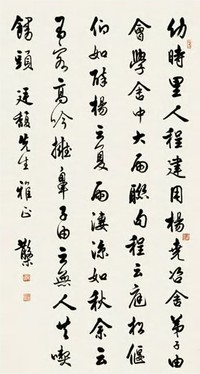 幼時里人程建用楊堯咨舍弟子由
會學舍中大雨聯句程云庭松偃
仰如醉楊云夏雨淒涼如秋余云
有客高吟擁鼻子由云無人共喫
饅頭 廷馥先生雅正